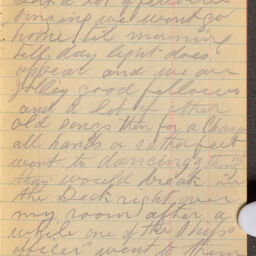 such a lot of fellows
singing we wont go
home til morning
till day light does
appear and we are
jolley good fellows
and a lot of other
old songs then for a change
all hands or rather feet
went to dancing I thought
they would break in
the Deck right over
my room after a
while one of the Ships
officer went to them